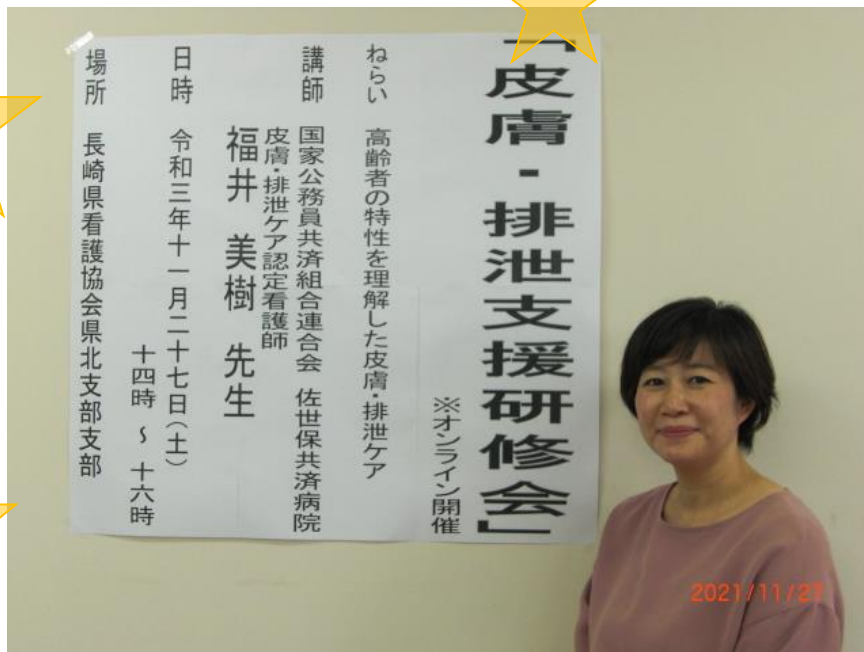 「皮膚・排泄支援研修会」
※オンライン開催
ねらい　高齢者の特性を理解した皮膚・排泄ケア
講師　国家公務員共済組合連合会　佐世保共済病院
皮膚・排泄ケア認定看護師
福井　美樹　先生
日時　令和三年十一月二十七日（土）
十四時　～　十六時
場所　長崎県看護協会県北支部支部
2021/11/27